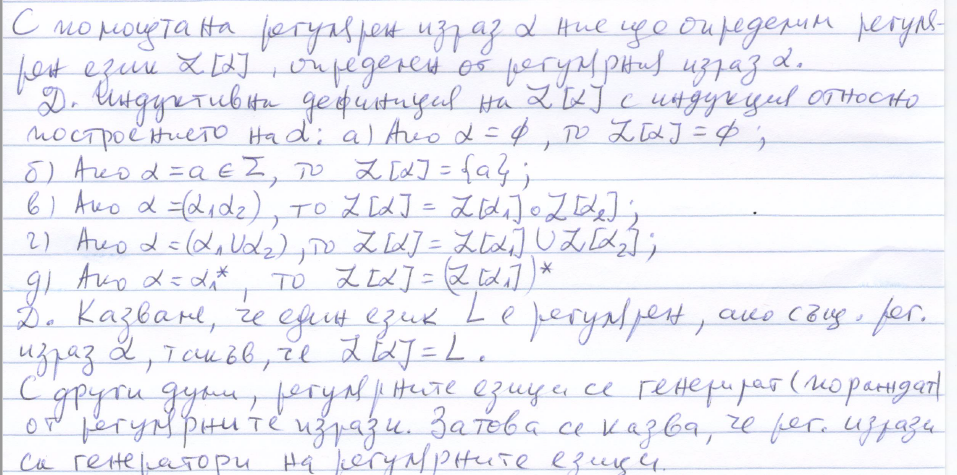 С помощта на регулярен израз α ние ще определим регуля-
рен език L[α], определен от регулярния израз α.
Д. Индуктивни дефиниция на L[α] с индукция относно
построението на α: а) Ако α = ϕ, то L[α] = ϕ;
б) Ако α = a ∈ Σ, то L[α] = {a};
в) Ако α = (α₁α₂), то L[α] = L[α₁]∘L[α₂];
г) Ако α = (α₁∪α₂), то L[α] = L[α₁] ∪ L[α₂];
д) Ако α = α₁*, то L[α] = (L[α₁])*
Д. Казваме, че един език L е регулярен, ако същ. рег.
израз α, такъв, че L[α] = L.
С други думи, регулярните езици се генерират (пораждат)
от регулярните изрази. Затова се казва, че рег. изрази
са генератори на регулярните езици.